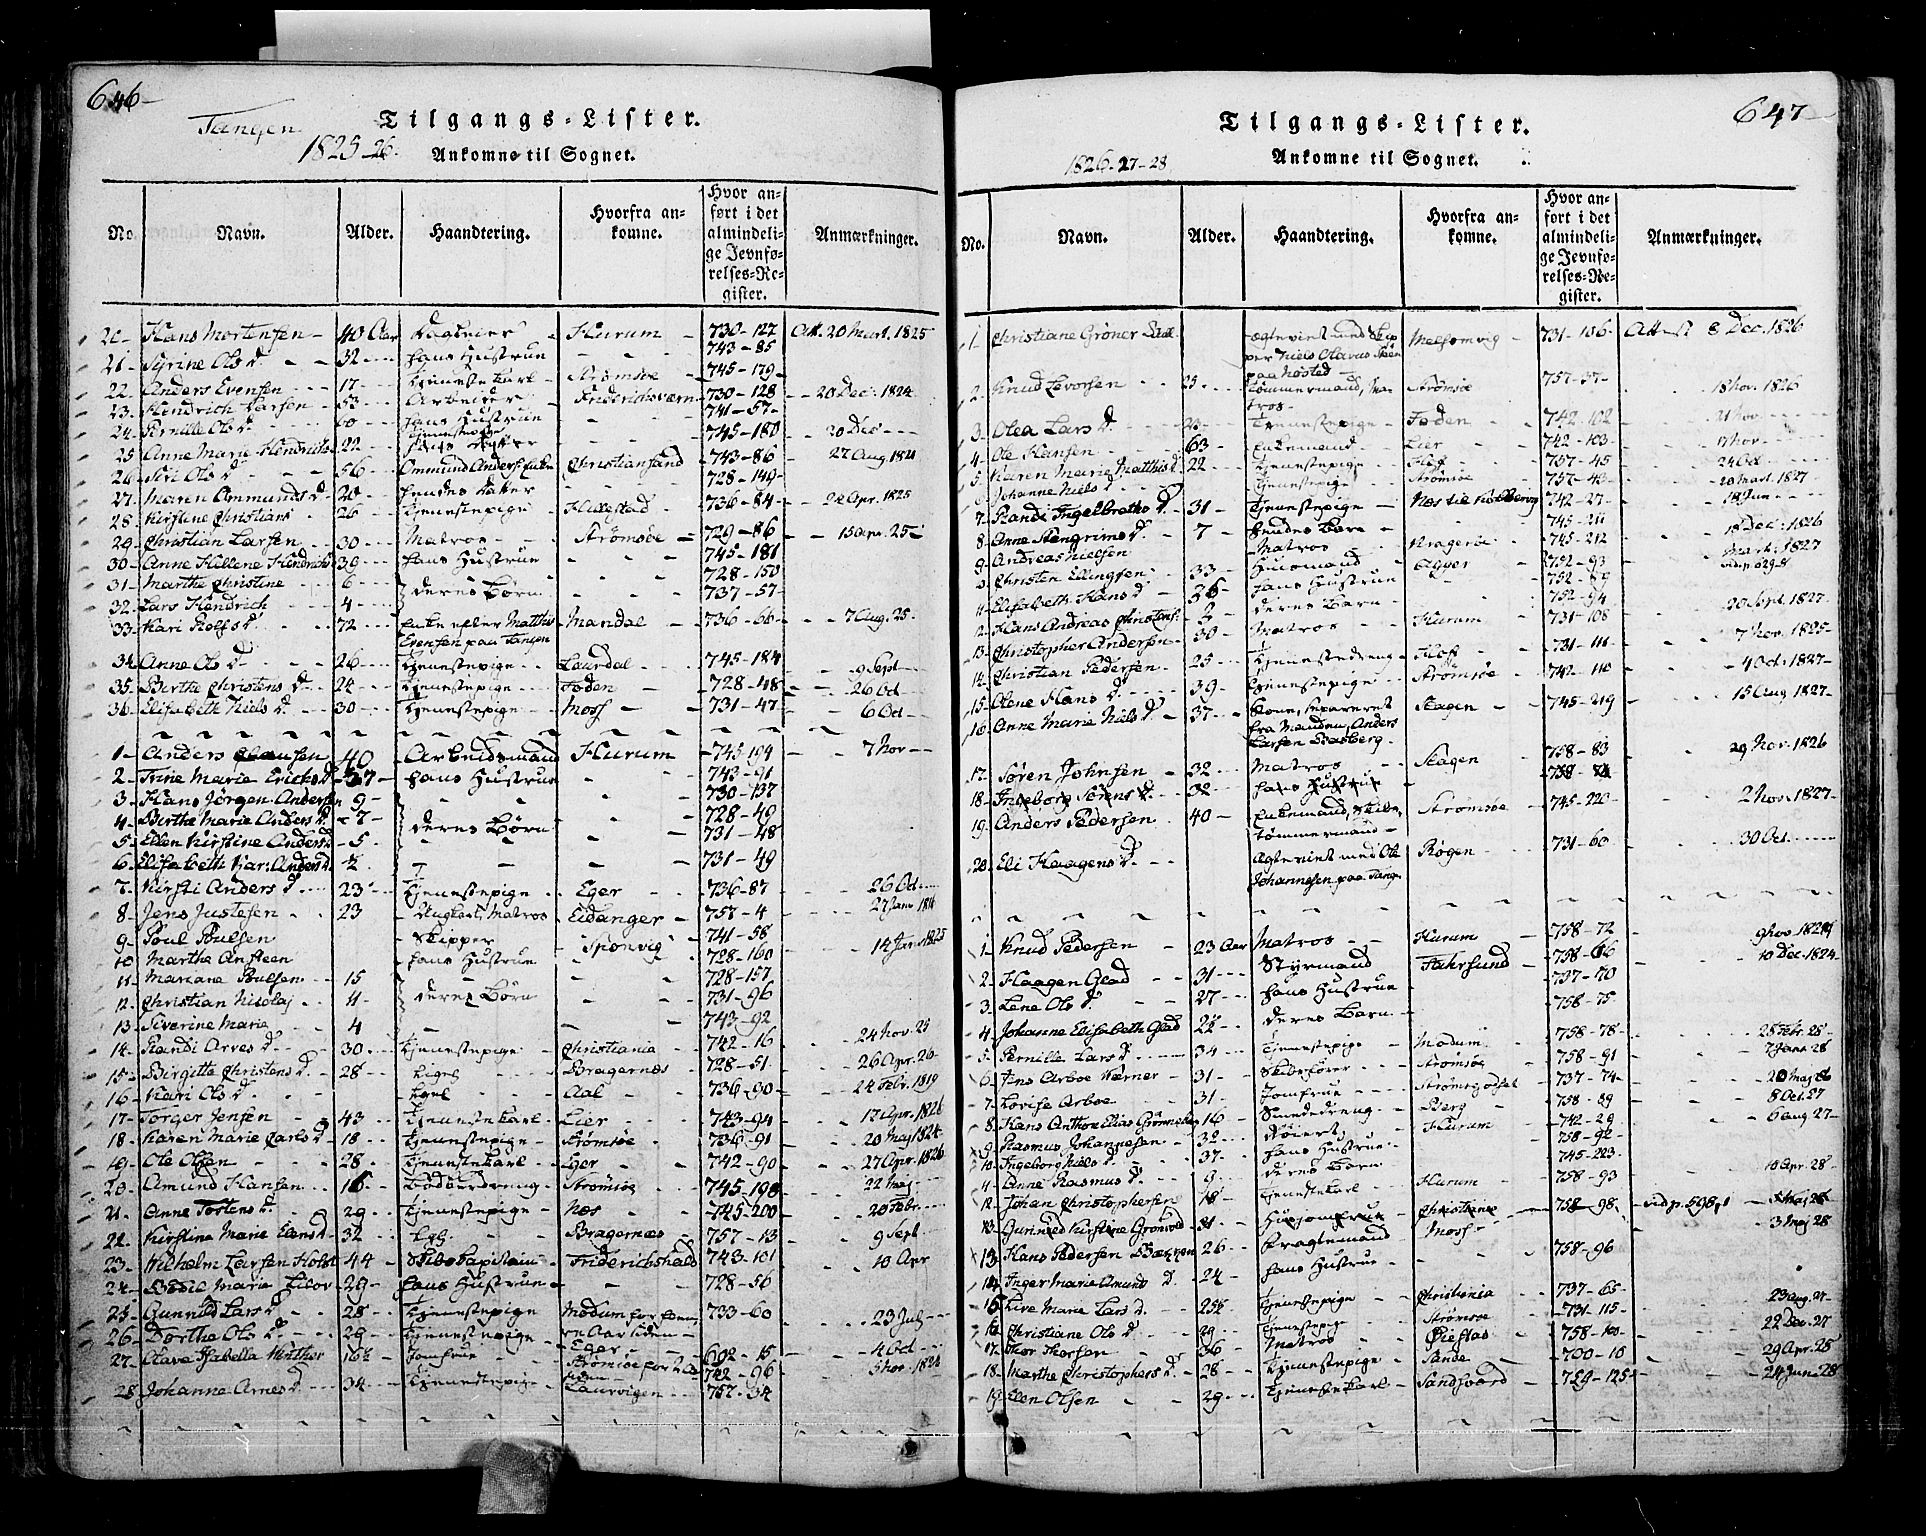 646
Tangen
Tilgangs-Lister.
1825-26.
Ankomne til Sognet.
No. Navn. Alder. Haandtering. Hvorfra ankomne. Hvor anført i det almindelige Jevnførelses-Register. Anmærkninger.
20 Hans Mortensen 40 Aar Hurum 730-127 Att. 20 Mart. 1825
21 Syrine Ols D. 32 hans Hustrue 743-85
22 Anders Evensen 17 Tjenestekarl Strømsøe 745-179
23 Hendrich Larsen 53 Arbeider Friderichsværn 730-128 20 Dec. 1824
24 Pernille Ols D. 60 hans Hustrue 741-57
25 Anne Marie Hendrichs 22 Tjenestepige 745-180 20 Dec
26 Siri Ols D. 56 Ommund Anders. Enke Christiansand 743-86 27 Aug. 1821
27 Maren Ommunds D. 20 hendes Datter 728-149
28 Kirstine Christians 26 Tjenestepige 736-84 22 Apr. 1825
29 Christian Larsen 30 Matros Strømsøe 729-86 15 Apr. 25
30 Anne Hellene Hendrichs 39 hans Hustrue 745-181
31 Marthe Christine 6 deres Børn 728-150
32 Lars Hendrich 4 737-57
33 Kari Rolfs D. 72 Enke efter Matthis Evensen paa Tangen Mandal 736-66 7 Aug. 25
34 Anne Ols D. 26 Tjenestepige Laurdal 745-184 9 Sept
35 Berthe Christens D. 24 Tjenestepige Foden 728-48 26 Oct
36 Elisabeth Niels D. 30 Tjenestepige Moss 731-47 6 Oct
1 Anders Claussen 40 Arbeidsmand Hurum 745-191 7 Nov
2 Trine Marie Erichs D. 37 hans Hustrue 743-91
3 Hans Jørgen Andersen 9 730-137
4 Berthe Marie Anders D. 7 deres Børn 728-49
5 Ellen Kirstine Anders D. 5 731-48
6 Elisabeth Kar: Anders D. ½ 731-49
7 Kirsti Anders D. 23 Tjenestepige Eger 736-87 26 Oct
8 Jens Justesen 23 Ungkarl, Matros Eidanger 757-4 27 Janv. 1816
9 Poul Poulsen Skipper Sponvig 741-58 14 Jan. 1825
10 Marthe Ansteen hans Hustrue 728-160
11 Mariane Poulsen 15 728-157
12 Christian Nicolaj 11 deres Børn 731-96
13 Siverine Marie 4 743-92
14 Randi Arves D. 30 Tjenestepige Christiania 742-16 24 Nov. 25
15 Birgitte Christens D. 28 Bragernæs 728-51 26 Apr. 26
16 Kari Ols D. Aal 736-90 24 Febr. 1819
17 Torger Jensen 43 Tjenestekarl Lier 743-94 17 Apr. 1826
18 Karen Marie Carls D. 18 Tjenestepige Strømsøe 736-91 20 Maj 1824
19 Ole Olsen 28 Tjenestekarl Eger 742-90 27 Apr. 1826
20 Amund Hansen 16 Strømsøe 745-198 22 Maj
21 Anne Tostens D. 29 Tjenestepige Næs 745-200 20 Febr.
22 Kirstine Marie Elans D. 32 Bragernæs 757-13 9 Sept
23 Wilhelm Larsen Holst 44 Skibs Capitain Friderichshald 743-101 10 Apr
24 Bodil Marie Lilov 29 hans Hustrue 728-56
25 Gunnild Lars D. 28 Tjenestepige Modum 733-60 23 July
26 Dorthe Ols D. 29 Tjenestepige Eger 692-15 4 Oct
27 Olave Isabella Winther 16½ Jomfrue Strømsøe 742-96 5 Nov. 1824
28 Johanne Arnes D. 34 Tjenestepige Laurvigen 757-34
647
Tilgangs-Lister.
1826-27-28
Ankomne til Sognet.
No. Navn. Alder. Haandtering. Hvorfra ankomne. Hvor anført i det almindelige Jevnførelses-Register. Anmærkninger.
1 Christiane Gröner Melsomvig 731-106 Att. 8 Dec. 1826
2 Knud Levorsen 25 Tømmermand, Matros Strømsøe 757-37 18 Nov. 1826
3 Olea Lars D. Tjenestepige Foden 742-102 21 Nov
4 Ole Hansen 63 Enkemand Lier 742-103 17 Nov
5 Karen Marie Matthis D. 22 Tjenestepige Hoff 757-45 24 Oct
6 Johanne Niels D. Tjenestepige Strømsøe 757-43 20 Mart. 1827
7 Randi Ingelbreths D. 31 Tjenestepige 742-27 18 Jun
8 Anne Stengrims D. 7 hendes Barn 745-211
9 Andreas Nielsen Matros Kragerøe 745-212 18 Dec. 1826
Christen Ellingsen 33 Huusmand Agger 752-93 Mart. 1827
11 Elisabeth Hans D. 36 hans Hustrue 752-89
12 Hans Andreas Christens. deres Barn 752-94
13 Christopher Andersen 30 Matros Hurum 731-108 20 Sept. 1827
14 Christian Pedersen 25 Tjenestedreng Hoff 731-111 7 Nov. 1825
15 Olene Hans D. 39 Tjenestepige Strømsøe 742-110 4 Oct. 1827
16 Anne Marie Niels D. 37 Kone, separeret fra Manden, Anders Larsen Skagen 745-219 15 Aug 1827
17 Søren Johnsen 32 Matros Skagen 758-83 29 Nov. 1826
18 Ingeborg Sørens D. 32 hans Hustrue 758-
19 Anders Pedersen 40 Enkemand, Skibs Tømmermand Strømsøe 745-220 2 Nov. 1827
20 Eli Haagens D. Ægteviet med Ole Johannesen paa Tang. Røgen 731-60 30 Oct.
1 Knud Pedersen 23 Aar Matros Hurum 758-72 9 Nov
2 Haagen Glad 31 Styrmand Fahrsund 758-66 10 Dec. 1824
3 Lene Ols D. 27 hans Hustrue 737-70
4 Johanne Elisabeth Glad deres Barn 758-75
5 Pernille Lars D. 34 Tjenestepige Modum 758-78 25 Febr. 28
6 Jens Arboe Kerner 31 Skibsfører Strømsøe 758-91 7 Janv. 28
7 Lovise Arboe 31 Jomfrue Strømsgodset 737-74 20 Maj
8 Hans Anthon Elias Grönneberg 16 Berg 758-89 8 Oct. 27
9 Rasmus Johannesen 32 Hurum 742-29 6 Aug 27
10 Ingeborg Niels D. 37 hans Hustrue 758-92
11 Anne Rasmus D. 9 deres Barn 745-223
12 Johan Christophersen 18 Tjenestekarl Hurum 758-93 10 Apr. 28
13 Gurined Kirstine Gromvold 31 Huusjomfrue Christiania 758-98 vid. p. 598, 1
13 Hans Pedersen 26 Fragtemand Moss 758-96 3 Maj 28
14 Inger Marie Amund D. 24 hans Hustrue
15 Live Marie Lars D. 25½ Tjenestepige Christiania 737-65 23 Aug. 27
16 Christiane Ols D. 29 Tjenestepige Strømsøe 731-115 22 Dec. 27
17 Thor Thorsen 36 Matros Øiestad 758-100
18 Marthe Christophers D. 28 Tjenestepige Sande 700-10 29 Apr. 25
19 Even Olsen 29 Tjenestekarl Sandsvard 759-125 24 Jun. 28